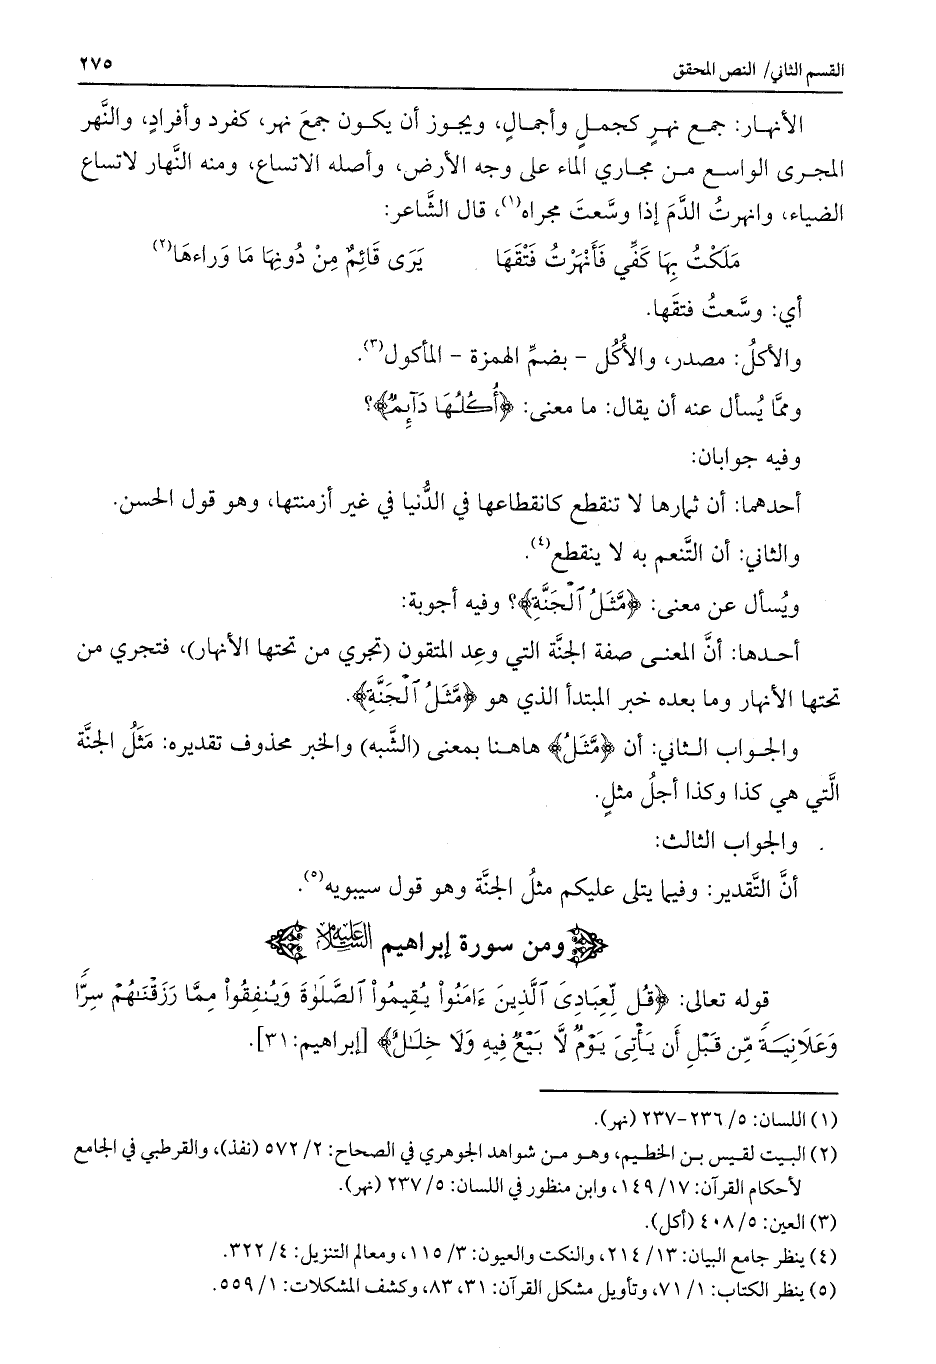 القسم الثاني/ النص المحقق ٢٧٥
الأنهـار: جمـع نهـرٍ كجمـلٍ وأجمـالٍ، ويجـوز أن يكـون جمعَ نهر، كفرد وأفرادٍ، والنَّهر
المجـرى الواسـع مـن مجـاري الماء على وجه الأرض، وأصله الاتساع، ومنه النَّهار لاتساع
الضياء، وانهرتُ الدَّمَ إذا وسَّعتَ مجراه(١)، قال الشَّاعر:
مَلَكْتُ بِهَا كَفِّي فَأَنْهَرْتُ فَتْقَهَا يَرَى قَائِمٌ مِنْ دُونِهَا مَا وَراءهَا(٢)
أي: وسَّعتُ فتقَها.
والأكلُ: مصدر، والأُكُل - بضمِّ الهمزة - المأكول(٣).
وممَّا يُسأل عنه أن يقال: ما معنى: ﴿أُكُلُهَا دَآئِمٌ﴾؟
وفيه جوابان:
أحدهما: أن ثمارها لا تنقطع كانقطاعها في الدُّنيا في غير أزمنتها، وهو قول الحسن.
والثاني: أن التَّنعم به لا ينقطع(٤).
ويُسأل عن معنى: ﴿مَّثَلُ ٱلْجَنَّةِ﴾؟ وفيه أجوبة:
أحـدها: أنَّ المعنـى صفة الجنَّة التي وعِد المتقون (تجري من تحتها الأنهار)، فتجري من
تحتها الأنهار وما بعده خبر المبتدأ الذي هو ﴿مَّثَلُ ٱلْجَنَّةِ﴾.
والجـواب الـثاني: أن ﴿مَّثَلُ﴾ هاهـنا بـمعنى (الشَّبه) والخبر محذوف تقديره: مَثَلُ الجنَّة
الَّتي هي كذا وكذا أجلُ مثلٍ.
. والجواب الثالث:
أنَّ التَّقدير: وفيما يتلى عليكم مثلُ الجنَّة وهو قول سيبويه(٥).
ومن سورة إبراهيم عليه السلام
قوله تعالى: ﴿قُل لِّعِبَادِيَ ٱلَّذِينَ ءَامَنُواْ يُقِيمُواْ ٱلصَّلَوٰةَ وَيُنفِقُواْ مِمَّا رَزَقْنَٰهُمْ سِرًّا
وَعَلَانِيَةً مِّن قَبْلِ أَن يَأْتِيَ يَوْمٌ لَّا بَيْعٌ فِيهِ وَلَا خِلَٰلٌ﴾ [إبراهيم: ٣١].
(١) اللسان: ٥/ ٢٣٦-٢٣٧ (نهر).
(٢) البـيت لقـيس بـن الخطـيم، وهـو مـن شواهد الجوهري في الصحاح: ٢/ ٥٧٢ (نفذ)، والقرطبي في الجامع
لأحكام القرآن: ١٧/ ١٤٩، وابن منظور في اللسان: ٥/ ٢٣٧ (نهر).
(٣) العين: ٥/ ٤٠٨ (أكل).
(٤) ينظر جامع البيان: ١٣/ ٢١٤، والنكت والعيون: ٣/ ١١٥، ومعالم التنزيل: ٤/ ٣٢٢.
(٥) ينظر الكتاب: ١/ ٧١، وتأويل مشكل القرآن: ٣١، ٨٣، وكشف المشكلات: ١/ ٥٥٩.